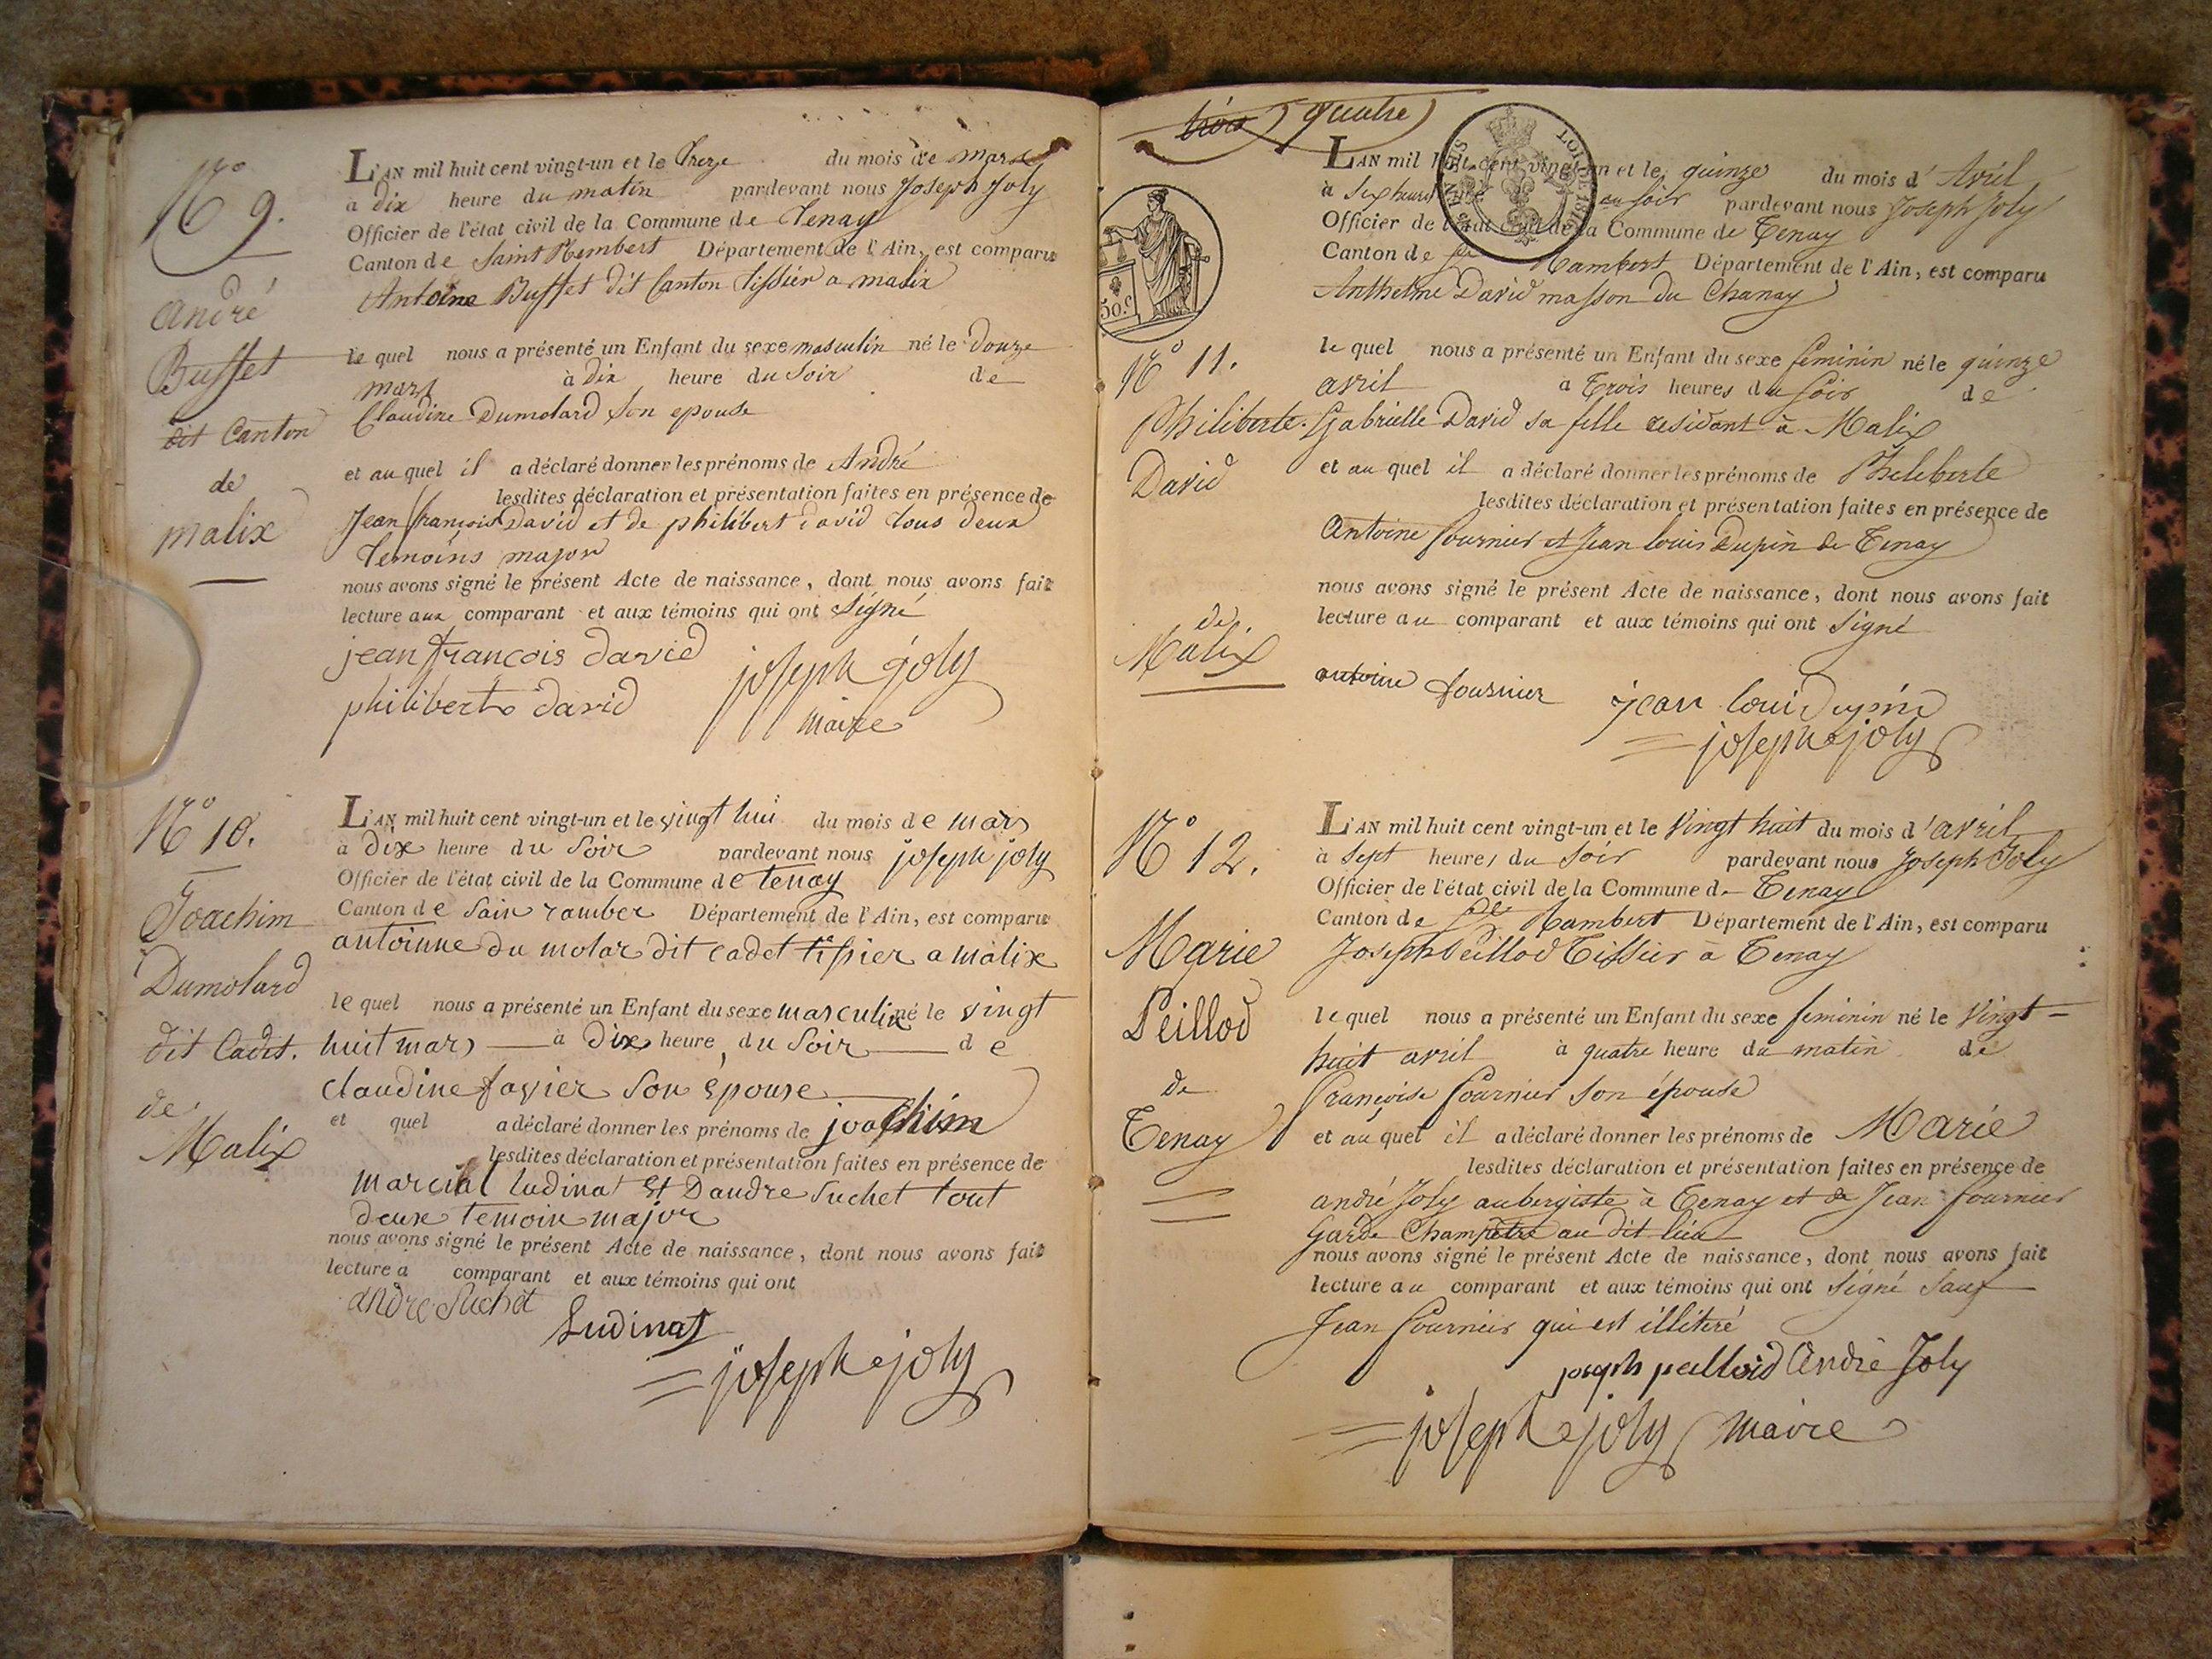 N° 9.
André
Buffet
dit Canton
de
malix
L'AN mil huit cent vingt-un et le treize du mois de mars
à dix heure du matin pardevant nous Joseph Joly
Officier de l'état civil de la Commune de Tenay
Canton de Saint Rembert Département de l'Ain, est comparu
Antoine Buffet dit Canton tissier a malix
le quel nous a présenté un Enfant du sexe masculin né le douze
mars à dix heure du Soir de
Claudine Dumolard son epouse
et au quel il a déclaré donner les prénoms de André
lesdites déclaration et présentation faites en présence de
Jean françois David et de philibert david tous deux
temoins major
nous avons signé le présent Acte de naissance, dont nous avons fait
lecture aux comparant et aux témoins qui ont Signé
jean francois david
joseph joly
philibert david
maire
N° 10.
Joachim
Dumolard
dit Cadet.
de
Malix
L'AN mil huit cent vingt-un et le vingt hui du mois de mars
à Dix heure du Soir pardevant nous joseph joly
Officier de l'état civil de la Commune de tenay
Canton de Sain ramber Département de l'Ain, est comparu
antoinne du molar dit cadet tissier a malix
le quel nous a présenté un Enfant du sexe masculin né le vingt
huit mars à Dix heure du Soir de
claudine favier Son épouse
et quel a déclaré donner les prénoms de joachim
lesdites déclaration et présentation faites en présence de
marcial ludinat et Dandre Suchet tout
deux temoin major
nous avons signé le présent Acte de naissance, dont nous avons fait
lecture a comparant et aux témoins qui ont
andre Suchet
Ludinat
joseph joly
trois quatre
50.c
N° 11.
Philiberte
David
de
Malix
L'AN mil huit cent vingt-un et le quinze du mois d'Avril
à Six heures au soir pardevant nous Joseph Joly
Officier de l'état civil de la Commune de Tenay
Canton de St Rambert Département de l'Ain, est comparu
Anthelme David masson du Chanay
le quel nous a présenté un Enfant du sexe feminin né le quinze
avril à Trois heures du soir de
Gabrielle David sa fille residant à Malix
et au quel il a déclaré donner les prénoms de Philiberte
lesdites déclaration et présentation faites en présence de
Antoine fournier et Jean louis Dupin de Tenay
nous avons signé le présent Acte de naissance, dont nous avons fait
lecture au comparant et aux témoins qui ont Signé
antoine fournier
jean loui dupin
joseph joly
N° 12.
Marie
Peillod
de
Tenay
L'AN mil huit cent vingt-un et le Vingt huit du mois d'avril
à Sept heures du Soir pardevant nous Joseph Joly
Officier de l'état civil de la Commune de Tenay
Canton de St Rambert Département de l'Ain, est comparu
Joseph Peillod Tissier à Tenay
le quel nous a présenté un Enfant du sexe feminin né le Vingt-
huit avril à quatre heure du matin de
françoise fournier Son épouse
et au quel il a déclaré donner les prénoms de Marie
lesdites déclaration et présentation faites en présence de
andré Joly aubergiste à Tenay et de Jean fournier
Garde Champêtre au dit lieu
nous avons signé le présent Acte de naissance, dont nous avons fait
lecture au comparant et aux témoins qui ont Signé Sauf
Jean fournier qui est illiteré
joseph peilloid André Joly
joseph joly maire